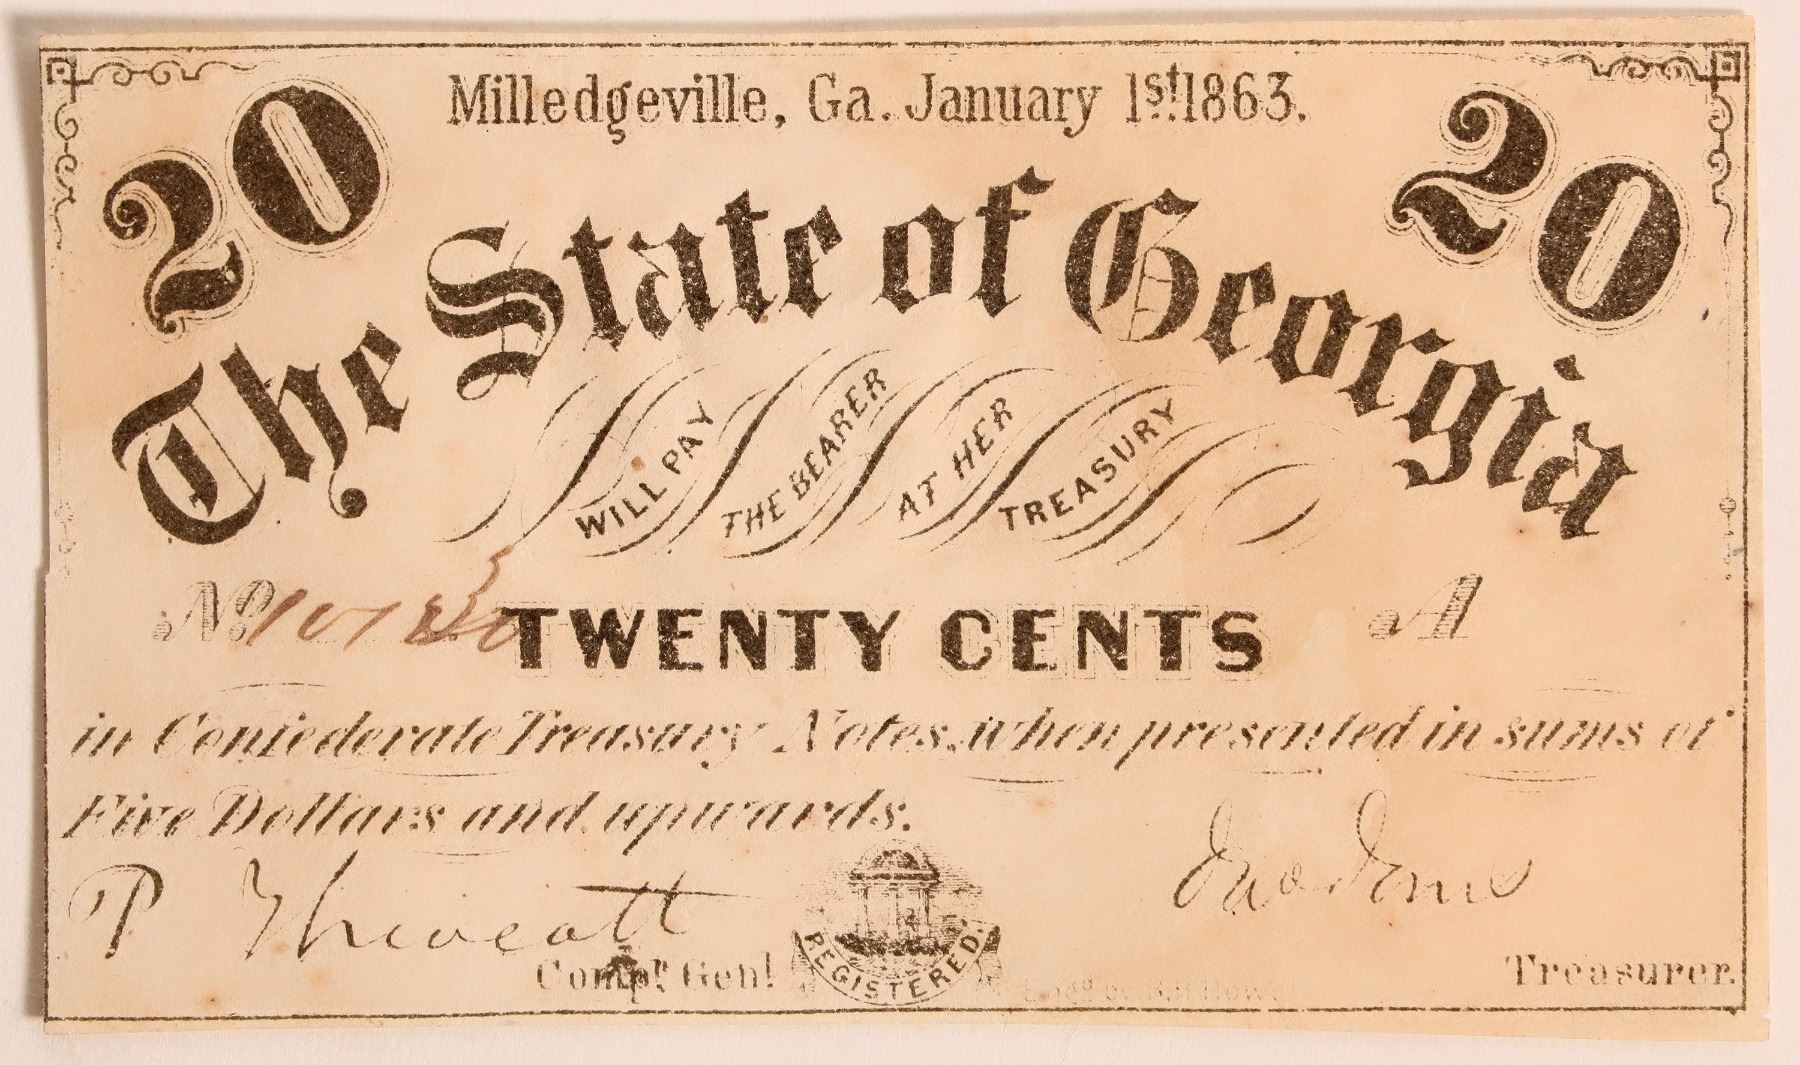 Milledgeville, Ga. January 1st. 1863.
20 20
The State of Georgia
WILL PAY THE BEARER AT HER TREASURY
No. TWENTY CENTS A
in Confederate Treasury Notes, when presented in sums of
Five Dollars and upwards.
P Thweatt Jno Jones
Compt. Genl. REGISTERED. Treasurer.